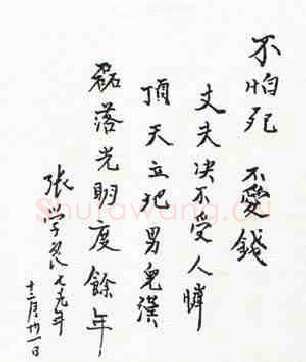 不怕死 不愛錢
丈夫决不受人憐
頂天立地男兒漢
磊落光明度餘年
張学良 七九年
十二月廿一日